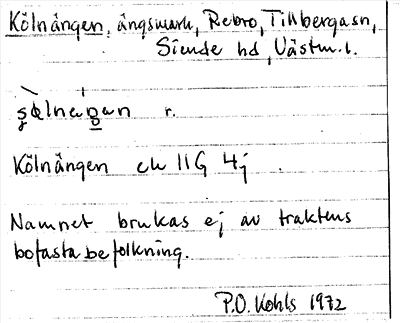 Kölnängen, ängsmark, Rebro, Tillbergasn,
Siende hd, Västm. l.
r.
Kölnängen ek 11G 4j
Namnet brukas ej av traktens
bofasta befolkning.
P.O. Kohls 1972